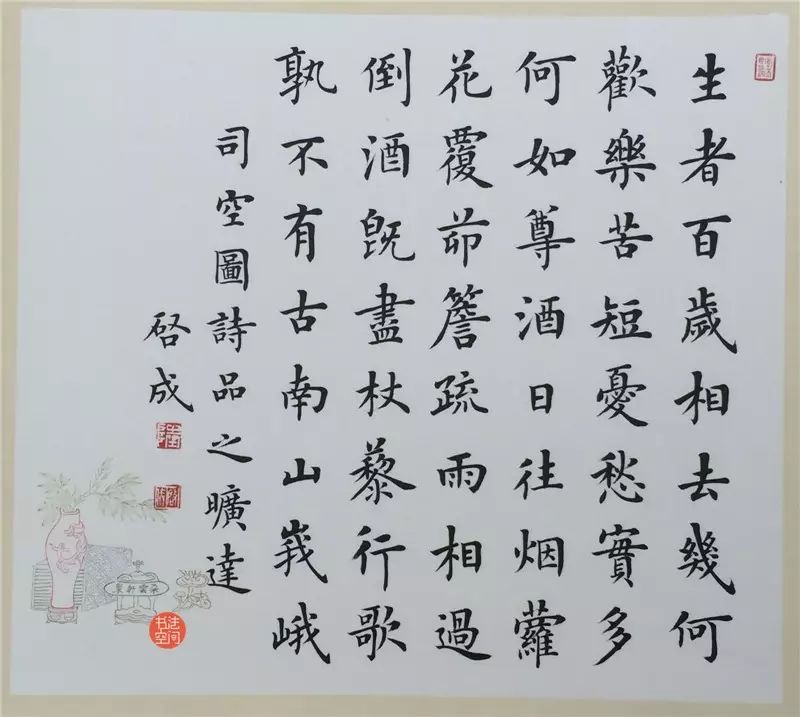 生者百歲相去幾何
歡樂苦短憂愁實多
何如尊酒日往烟蘿
花覆茆簷疏雨相過
倒酒既盡杖藜行歌
孰不有古南山峩峨
司空圖詩品之曠達
啓成
书法空间